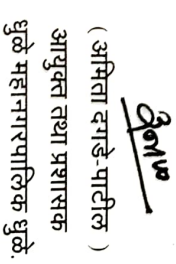 ( अमिता दगडे-पाटील )
आयुक्त तथा प्रशासक
धुळे महानगरपालिक धुळे.